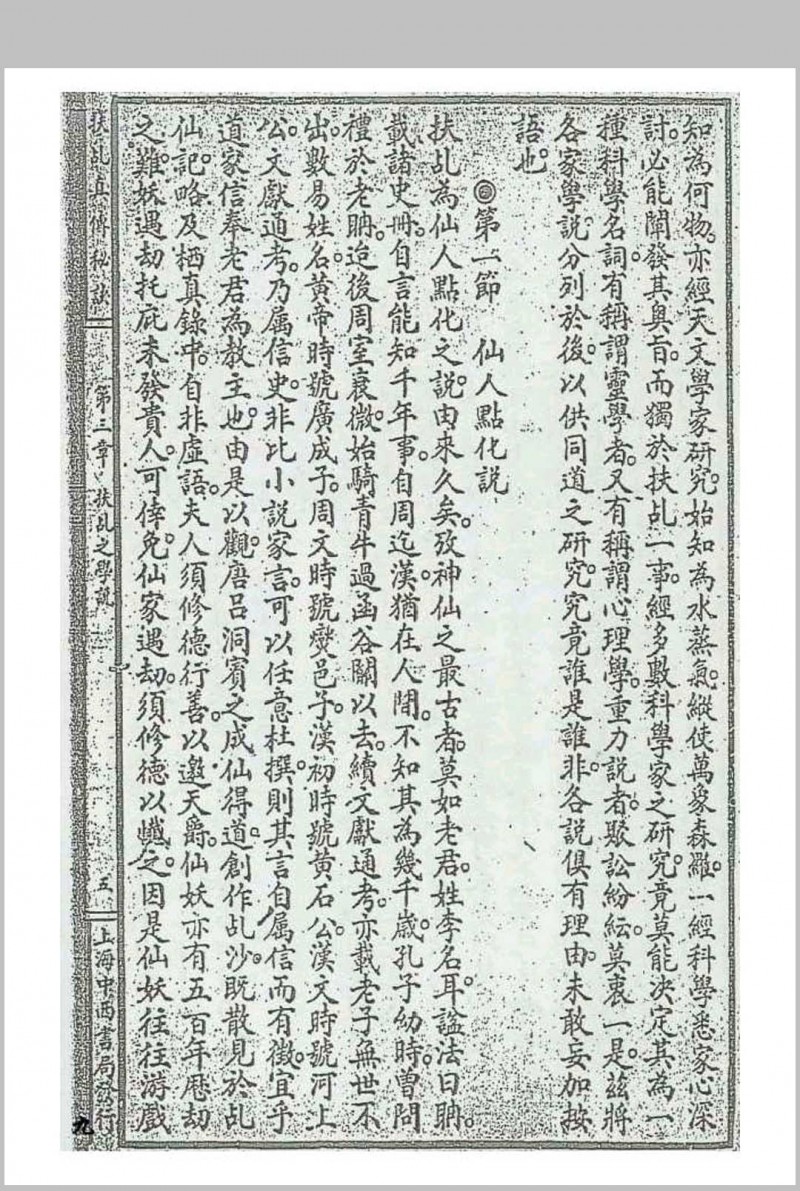 知為何物。亦經天文學家研究。始知為水蒸氣。縱使萬象森羅。一經科學悉家心深
討。必能闡發其奥旨。而獨於扶乩一事。經多數科學家之研究。竟莫能決定其為一
種科學名詞。有稱謂靈學者。又有稱謂心理學。重力説者。聚訟紛紜。莫衷一是。兹將
各家學説分列於後。以供同道之研究。究竟誰是誰非。各説俱有理由。未敢妄加按
語也。
◎第一節　仙人點化説
扶乩為仙人點化之説。由來久矣。攷神仙之最古者。莫如老君。姓李名耳。謚法曰聃。
載諸史冊。自言能知千年事。自周迄漢。猶在人間。不知其為幾千歲。孔子幼時。曾問
禮於老聃。迨後周室衰微。始騎青牛過函谷關以去。續文獻通考。亦載老子無世不
出。數易姓名。黄帝時號廣成子。周文時號爕邑子。漢初時號黄石公。漢文時號河上
公。文獻通考。乃属信史。非比小説家言。可以任意杜撰。則其言自属信而有徵。宜乎
道家信奉老君為教主也。由是以觀。唐吕洞賓之成仙得道。創作乩沙。既散見於乩
仙記略及栖真錄中。自非虛語。夫人須修德行善。以邀天爵。仙妖亦有五百年厯劫
之難。妖遇劫。托庇未發貴人。可倖免。仙家遇劫。須修德以懺之。因是仙妖往往游戲
扶乩真傳秘訣　第三章　扶乩之學説　五　上海中西書局發行
九